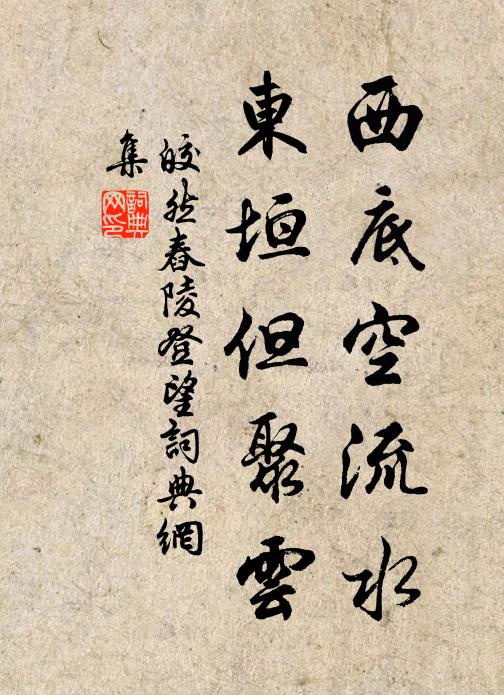 西底空流水
東垣但聚雲
皎然舂陵登望詞典網
集
詞典
网印